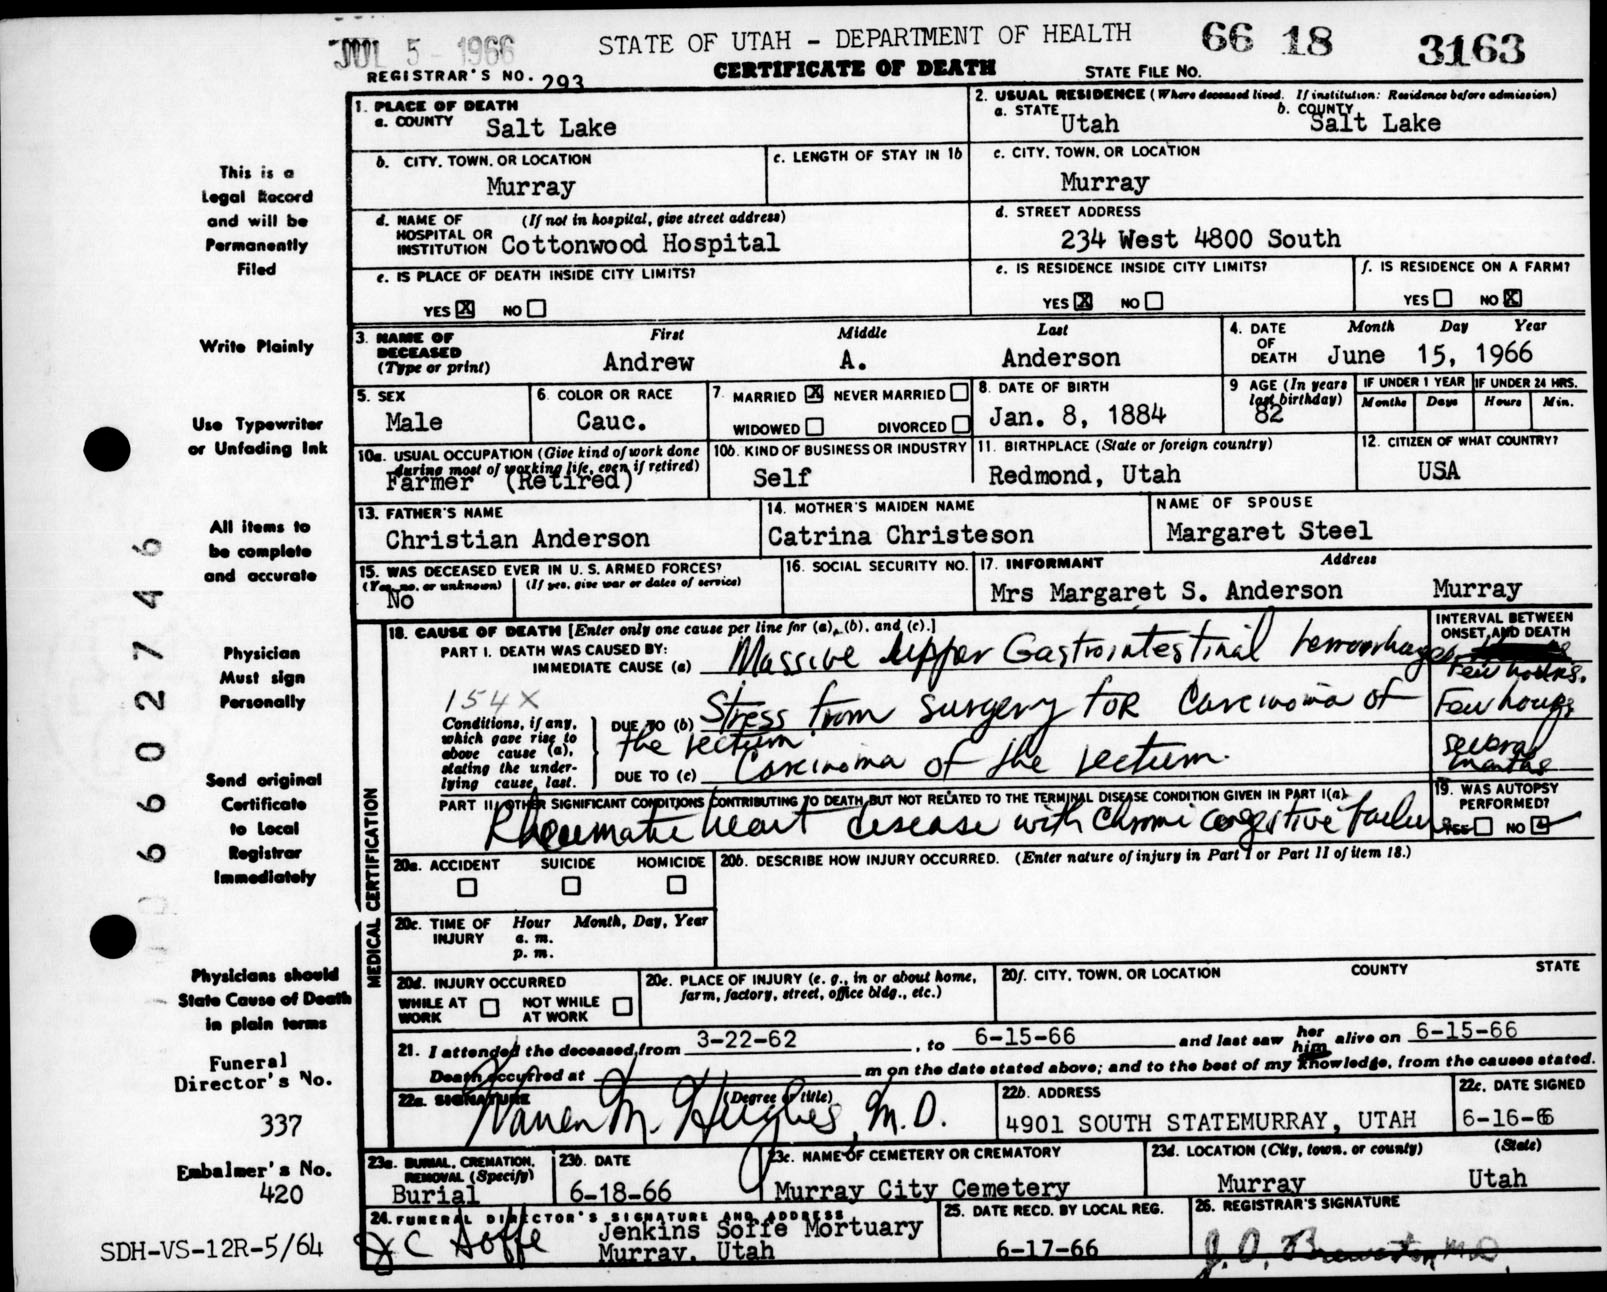 JUL 5 - 1966
STATE OF UTAH - DEPARTMENT OF HEALTH
66 18 3163
REGISTRAR'S NO. 293
CERTIFICATE OF DEATH
STATE FILE NO.
This is a
Legal Record
and will be
Permanently
Filed
Write Plainly
Use Typewriter
or Unfading Ink
All items to
be complete
and accurate
Physician
Must sign
Personally
Send original
Certificate
to Local
Registrar
Immediately
Physicians should
State Cause of Death
in plain terms
Funeral
Director's No.
337
Embalmer's No.
420
SDH-VS-12R-5/64
06602746
1. PLACE OF DEATH
a. COUNTY Salt Lake
2. USUAL RESIDENCE (Where deceased lived. If institution: Residence before admission)
a. STATE Utah b. COUNTY Salt Lake
b. CITY, TOWN, OR LOCATION
Murray
c. LENGTH OF STAY IN 1b
c. CITY, TOWN, OR LOCATION
Murray
d. NAME OF HOSPITAL OR INSTITUTION (If not in hospital, give street address)
Cottonwood Hospital
d. STREET ADDRESS
234 West 4800 South
e. IS PLACE OF DEATH INSIDE CITY LIMITS?
YES X NO
e. IS RESIDENCE INSIDE CITY LIMITS?
YES X NO
f. IS RESIDENCE ON A FARM?
YES NO X
3. NAME OF DECEASED (Type or print) First Middle Last
Andrew A. Anderson
4. DATE OF DEATH Month Day Year
June 15, 1966
5. SEX
Male
6. COLOR OR RACE
Cauc.
7. MARRIED X NEVER MARRIED
WIDOWED DIVORCED
8. DATE OF BIRTH
Jan. 8, 1884
9 AGE (In years last birthday)
82
IF UNDER 1 YEAR IF UNDER 24 HRS.
Months Days Hours Min.
10a. USUAL OCCUPATION (Give kind of work done during most of working life, even if retired)
Farmer (Retired)
10b. KIND OF BUSINESS OR INDUSTRY
Self
11. BIRTHPLACE (State or foreign country)
Redmond, Utah
12. CITIZEN OF WHAT COUNTRY?
USA
13. FATHER'S NAME
Christian Anderson
14. MOTHER'S MAIDEN NAME
Catrina Christeson
NAME OF SPOUSE
Margaret Steel
15. WAS DECEASED EVER IN U. S. ARMED FORCES?
(Yes, no, or unknown) (If yes, give war or dates of service)
No
16. SOCIAL SECURITY NO.
17. INFORMANT Address
Mrs Margaret S. Anderson Murray
18. CAUSE OF DEATH [Enter only one cause per line for (a), (b), and (c).]
INTERVAL BETWEEN ONSET AND DEATH
PART I. DEATH WAS CAUSED BY:
IMMEDIATE CAUSE (a) Massive upper Gastrointestinal hemorrhages Few hours.
154X
Conditions, if any, which gave rise to above cause (a), stating the underlying cause last.
DUE TO (b) Stress from surgery for Carcinoma of Few hours
the rectum
DUE TO (c) Carcinoma of the rectum. several months
PART II. OTHER SIGNIFICANT CONDITIONS CONTRIBUTING TO DEATH BUT NOT RELATED TO THE TERMINAL DISEASE CONDITION GIVEN IN PART I(a)
Rheumatic heart disease with chronic congestive failure
19. WAS AUTOPSY PERFORMED?
YES NO
MEDICAL CERTIFICATION
20a. ACCIDENT SUICIDE HOMICIDE
20b. DESCRIBE HOW INJURY OCCURRED. (Enter nature of injury in Part I or Part II of item 18.)
20c. TIME OF INJURY Hour Month, Day, Year
a. m.
p. m.
20d. INJURY OCCURRED
WHILE AT WORK NOT WHILE AT WORK
20e. PLACE OF INJURY (e. g., in or about home, farm, factory, street, office bldg., etc.)
20f. CITY, TOWN, OR LOCATION COUNTY STATE
21. I attended the deceased from 3-22-62, to 6-15-66 and last saw her him alive on 6-15-66
Death occurred at m on the date stated above; and to the best of my knowledge, from the causes stated.
22a. SIGNATURE (Degree or title)
Warren M. Hughes, M.D.
22b. ADDRESS
4901 SOUTH STATEMURRAY, UTAH
22c. DATE SIGNED
6-16-66
23a. BURIAL, CREMATION, REMOVAL (Specify)
Burial
23b. DATE
6-18-66
23c. NAME OF CEMETERY OR CREMATORY
Murray City Cemetery
23d. LOCATION (City, town, or county) (State)
Murray Utah
24. FUNERAL DIRECTOR'S SIGNATURE AND ADDRESS
Jenkins Soffe Mortuary
Murray, Utah
25. DATE RECD. BY LOCAL REG.
6-17-66
26. REGISTRAR'S SIGNATURE